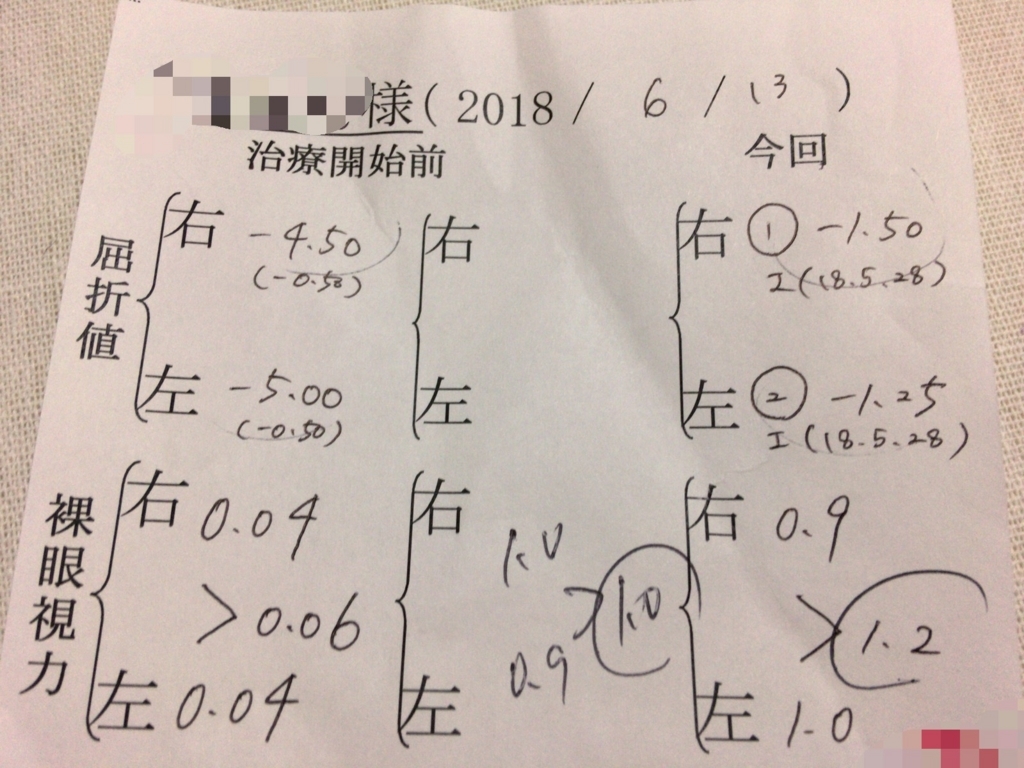 様(2018/ 6 / 13 )
治療開始前 今回
屈折値
右 -4.50
(-0.50)
左 -5.00
(-0.50)
右
左
右 ① -1.50
I(18.5.28)
左 ② -1.25
I(18.5.28)
裸眼視力
右 0.04
> 0.06
左 0.04
右 1.0
> 1.0
左 0.9
右 0.9
> 1.2
左 1.0